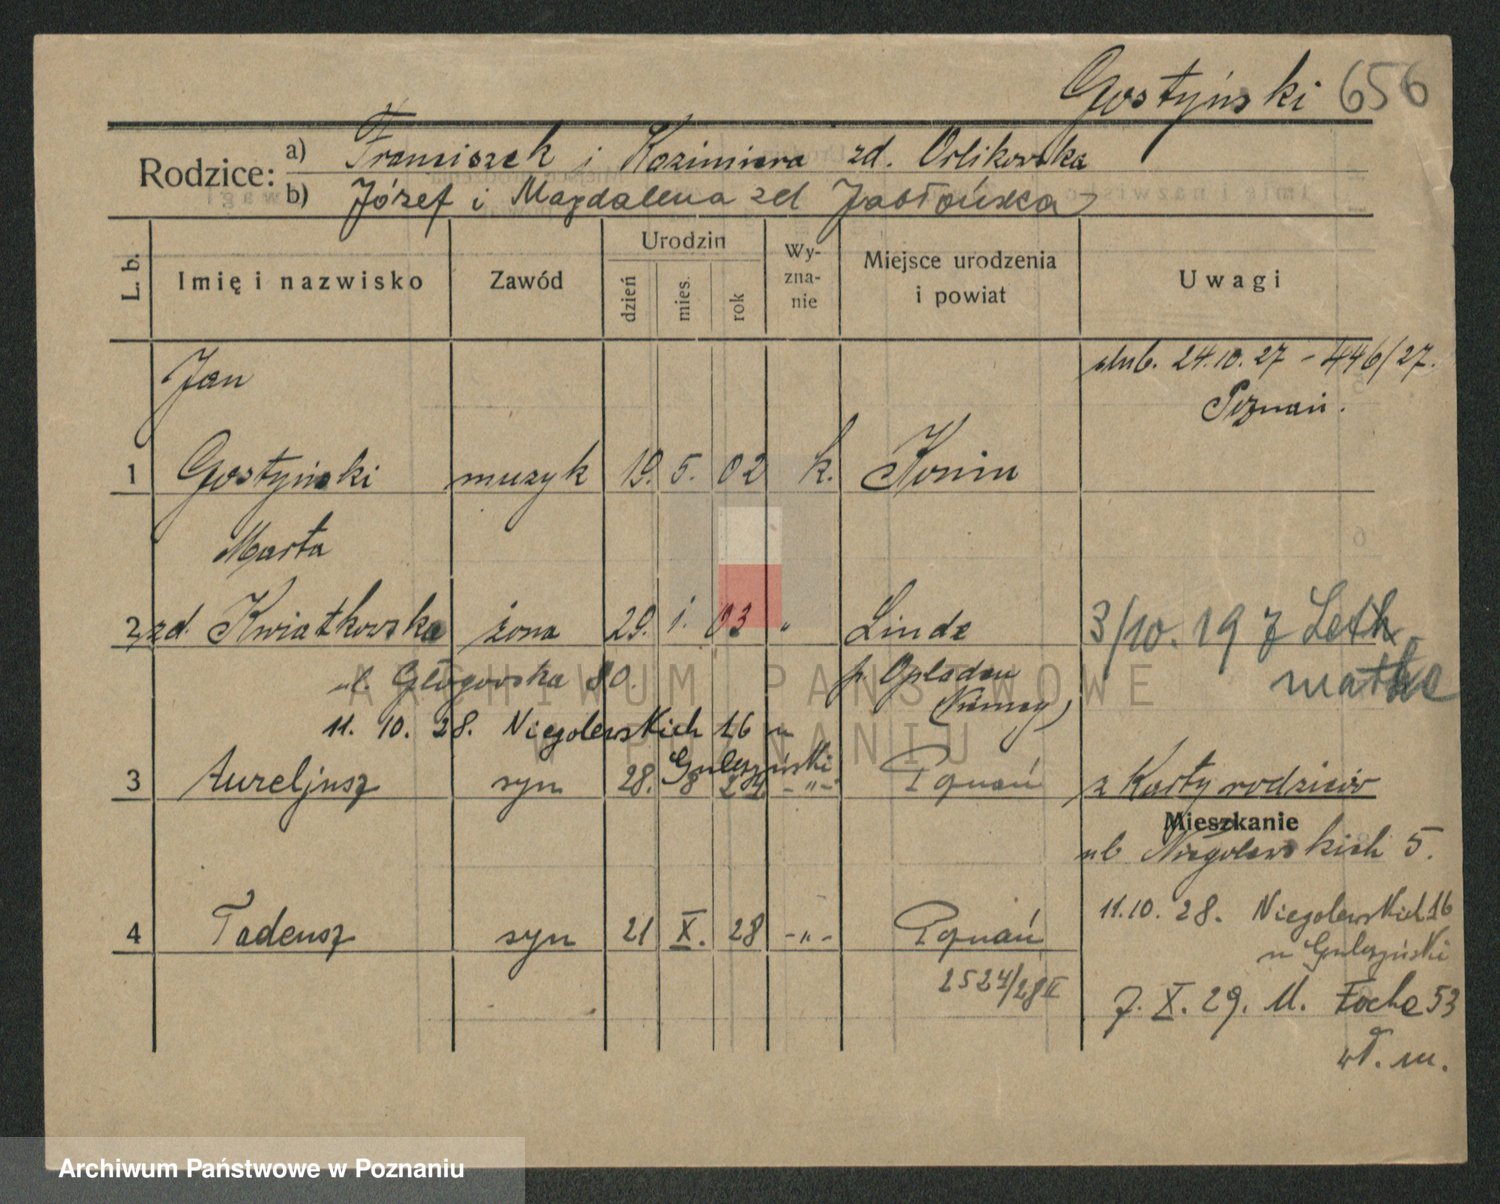 Gostyński 656
Rodzice: a) Franciszek i Kazimiera zd. Orlikowska
b) Józef i Magdalena zd Jabłońska
L. b.
Imię i nazwisko
Zawód
Urodzin
dzień
mies.
rok
Wy-
zna-
nie
Miejsce urodzenia
i powiat
Uwagi
Jan
ślub. 24.10.27 - 446/27.
Poznań.
1 Gostyński muzyk 19. 5. 02 k. Konin
Marta
2 zd. Kwiatkowska żona 29. i. 03 " Linde
3/10.19
ul. Głogowska 80.
p. Opladen
(Niemcy)
11. 10. 28. Niegolewskich 16 u
Gulczyński
3 Aureljusz syn 28. 8 -"- Poznań z Karty rodziców
Mieszkanie
ul Niegolewskich 5.
11.10.28. Niegolewskich 16
u Gulczyński
4 Tadeusz syn 21 X. 28 -"- Poznań
2524/28 II
7. X. 29. M. Focha 53
wł. m.
ARCHIWUM PAŃSTWOWE
W POZNANIU
Archiwum Państwowe w Poznaniu